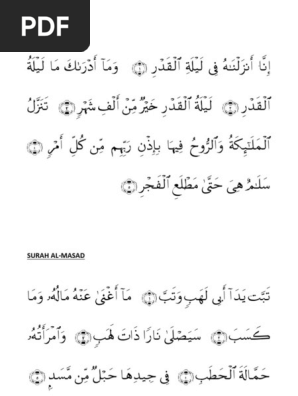 PDF
إِنَّا أَنزَلْنَـٰهُ فِى لَيْلَةِ ٱلْقَدْرِ ﴿١﴾ وَمَآ أَدْرَىٰكَ مَا لَيْلَةُ
ٱلْقَدْرِ ﴿٢﴾ لَيْلَةُ ٱلْقَدْرِ خَيْرٌ مِّنْ أَلْفِ شَهْرٍ ﴿٣﴾ تَنَزَّلُ
ٱلْمَلَـٰٓئِكَةُ وَٱلرُّوحُ فِيهَا بِإِذْنِ رَبِّهِم مِّن كُلِّ أَمْرٍ ﴿٤﴾
سَلَـٰمٌ هِىَ حَتَّىٰ مَطْلَعِ ٱلْفَجْرِ ﴿٥﴾
SURAH AL-MASAD
تَبَّتْ يَدَآ أَبِى لَهَبٍ وَتَبَّ ﴿١﴾ مَآ أَغْنَىٰ عَنْهُ مَالُهُۥ وَمَا
كَسَبَ ﴿٢﴾ سَيَصْلَىٰ نَارًا ذَاتَ لَهَبٍ ﴿٣﴾ وَٱمْرَأَتُهُۥ
حَمَّالَةَ ٱلْحَطَبِ ﴿٤﴾ فِى جِيدِهَا حَبْلٌ مِّن مَّسَدٍۭ ﴿٥﴾